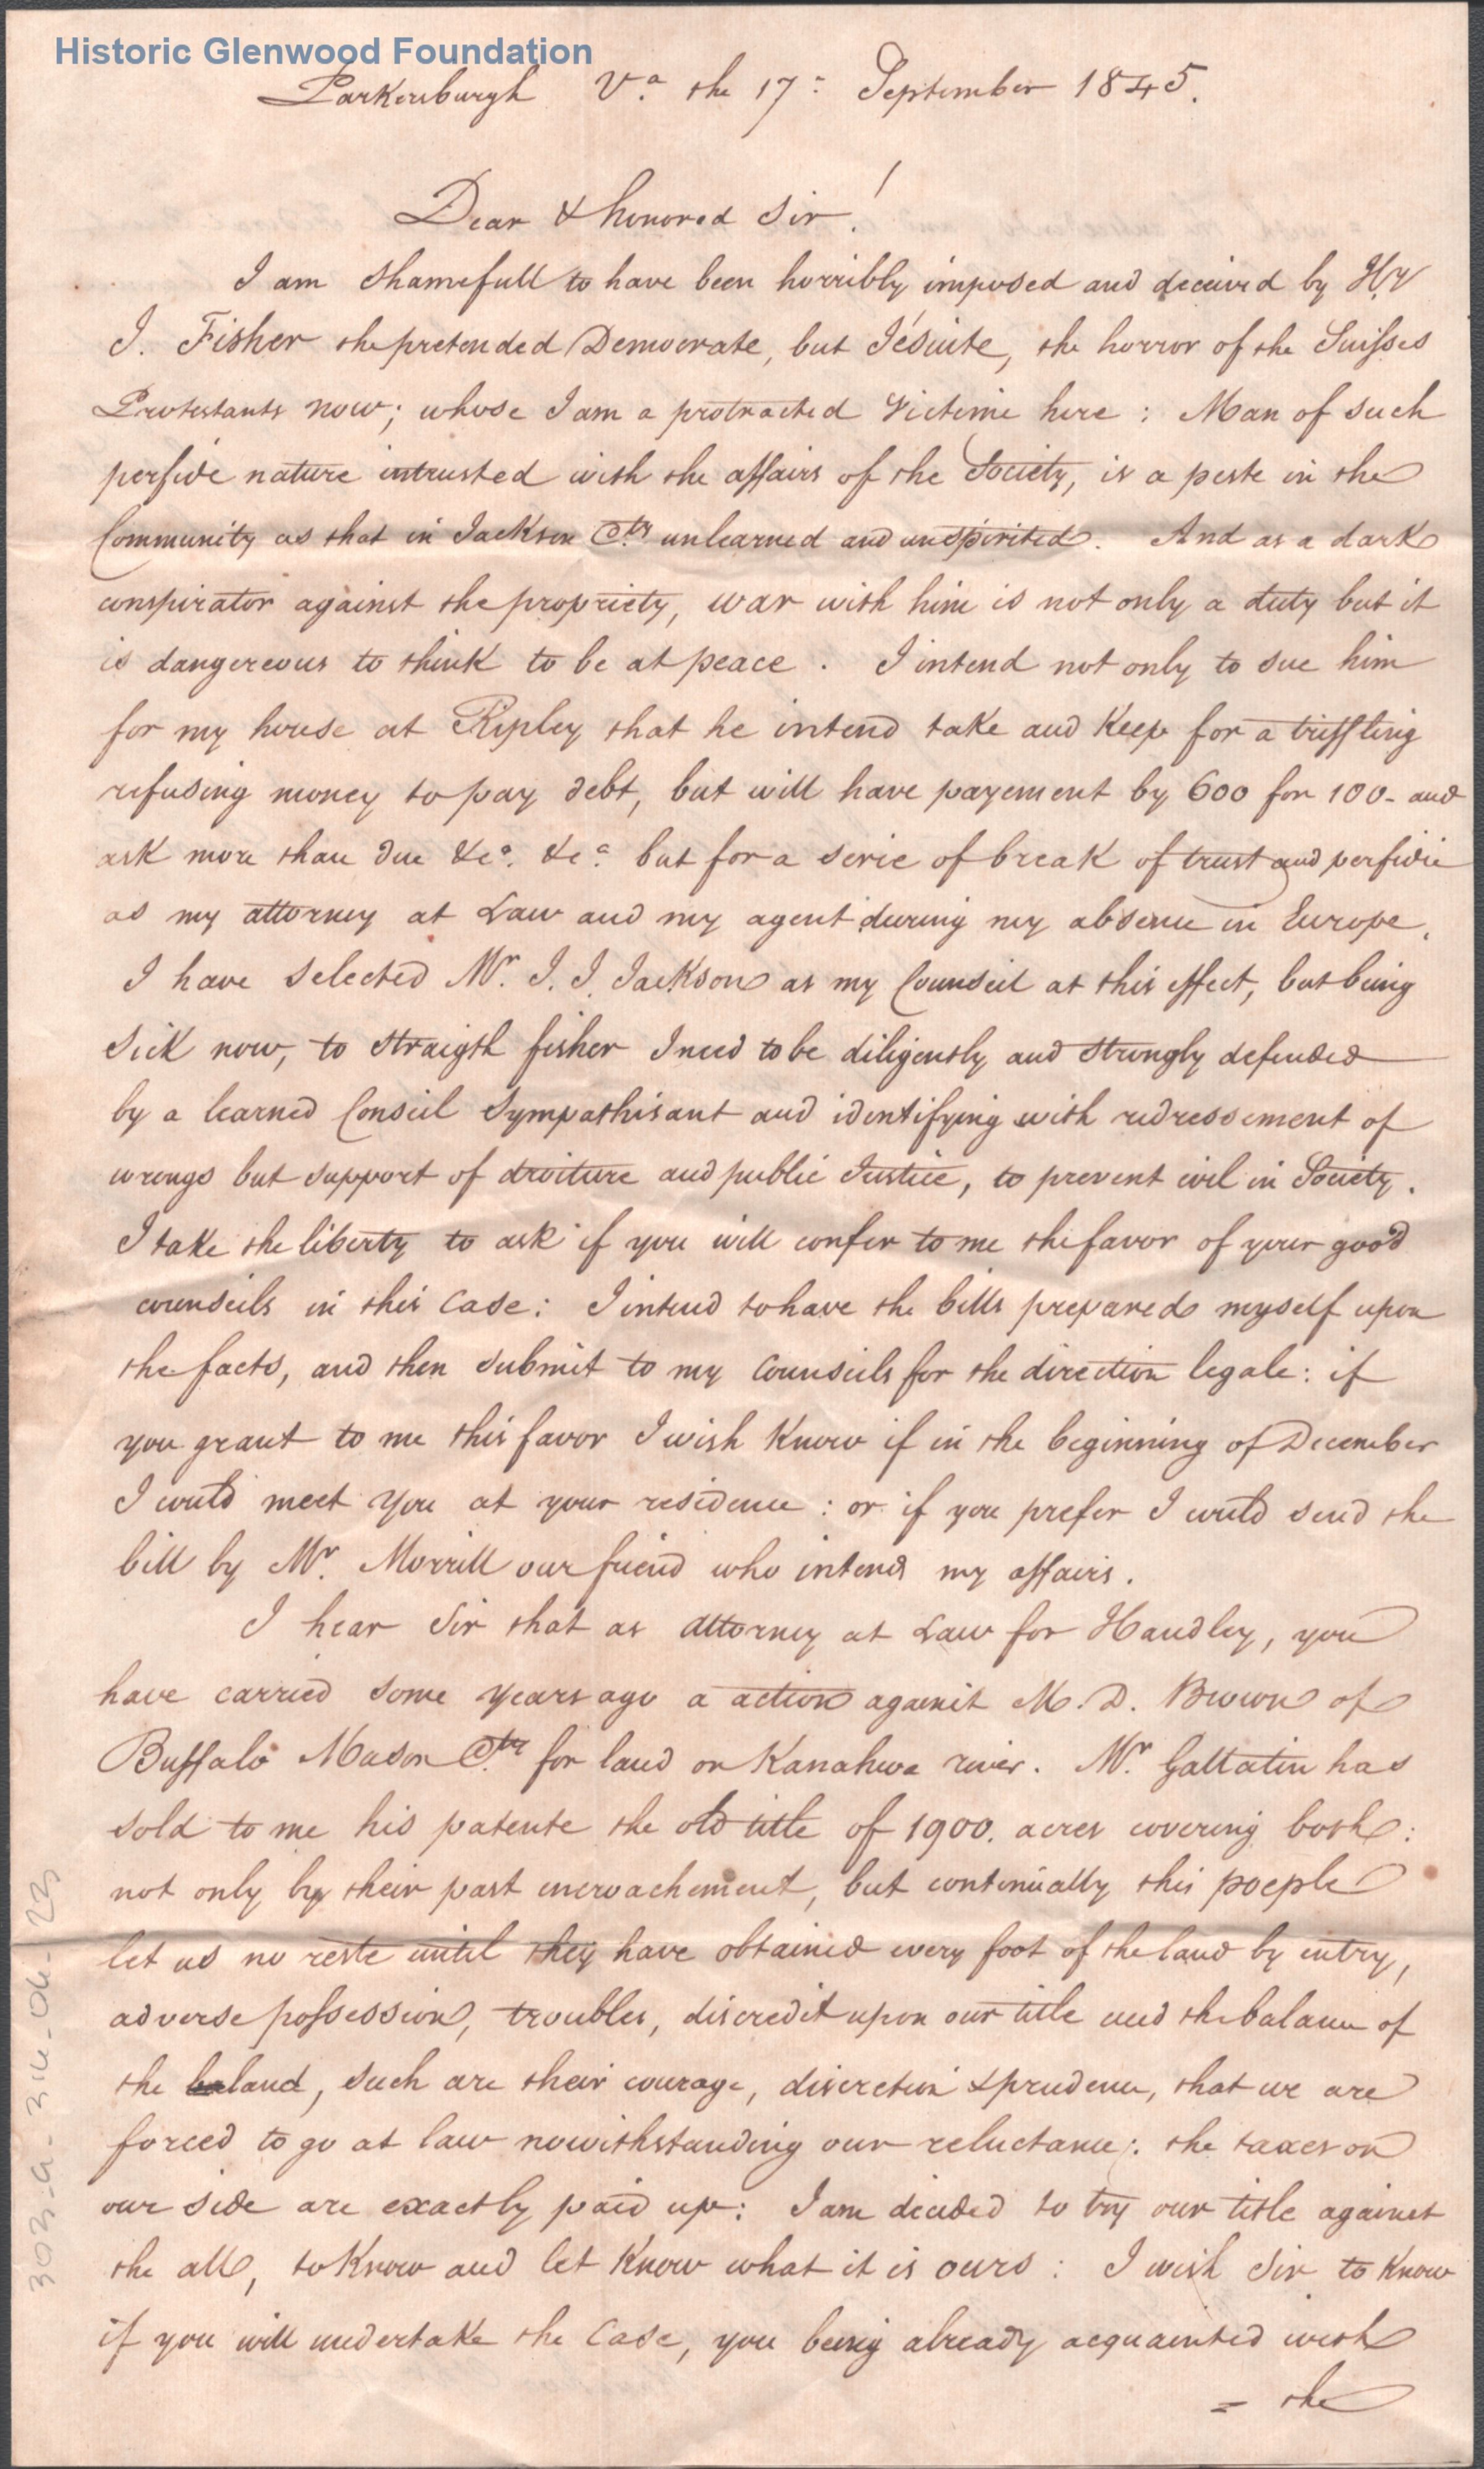 Historic Glenwood Foundation
Parkersburgh Va. the 17= September 1845.
Dear & honored Sir!
I am shamefull to have been horribly imposed and deceived by Hy
J. Fisher the pretended Democrate, but Jésuite, the horror of the Suisses
Protestants now; whose I am a protracted Victime here: Man of such
perfide nature intrusted with the affairs of the Society, is a peste in the
Community as that in Jackson Cty unlearned and unspirited. And as a dark
conspirator against the propriety, war with him is not only a duty but it
is dangereous to think to be at peace. I intend not only to sue him
for my house at Ripley that he intend take and Keep for a triffling
refusing money to pay debt, but will have payement by 600 for 100- and
ask more than due &ca. &ca. but for a serie of break of trust and perfidie
as my attorney at Law and my agent during my absence in Europe.
I have selected Mr. J. J. Jackson as my Counseil at this effect, but being
sick now, to straigth fisher I need to be diligently and strongly defended
by a learned Conseil sympathisant and identifying with redressement of
wrongs but support of droiture and public Justice, to prevent evil in Society.
I take the liberty to ask if you will confer to me the favor of your good
counseils in this Case: I intend to have the bills prepared myself upon
the facts, and then submit to my Counseils for the direction legale: if
you grant to me this favor I wish Know if in the beginning of December
I could meet you at your residence: or if you prefer I could send the
bill by Mr. Morrill our friend who intend my affairs.
I hear Sir that as attorney at Law for Handley, you
have carried some years ago a action against M. D. Brown of
Buffalo Mason Cty for land on Kanahwa river. Mr. Gallatin has
sold to me his patente the old title of 1900. acres covering both:
not only by their past encroachement, but continually this poeple
let us no reste until they have obtained every foot of the land by entry,
adverse possession, troubles, discredit upon our title and the balance of
the land, such are their courage, discretion & prudence, that we are
forced to go at law nowithstanding our reluctance: the taxes on
our side are exactly paid up: I am decided to try our title against
the all, to Know and let Know what it is ours: I wish Sir to Know
if you will undertake the Case, you being already acquainted with
= the
303-a-34-06-23